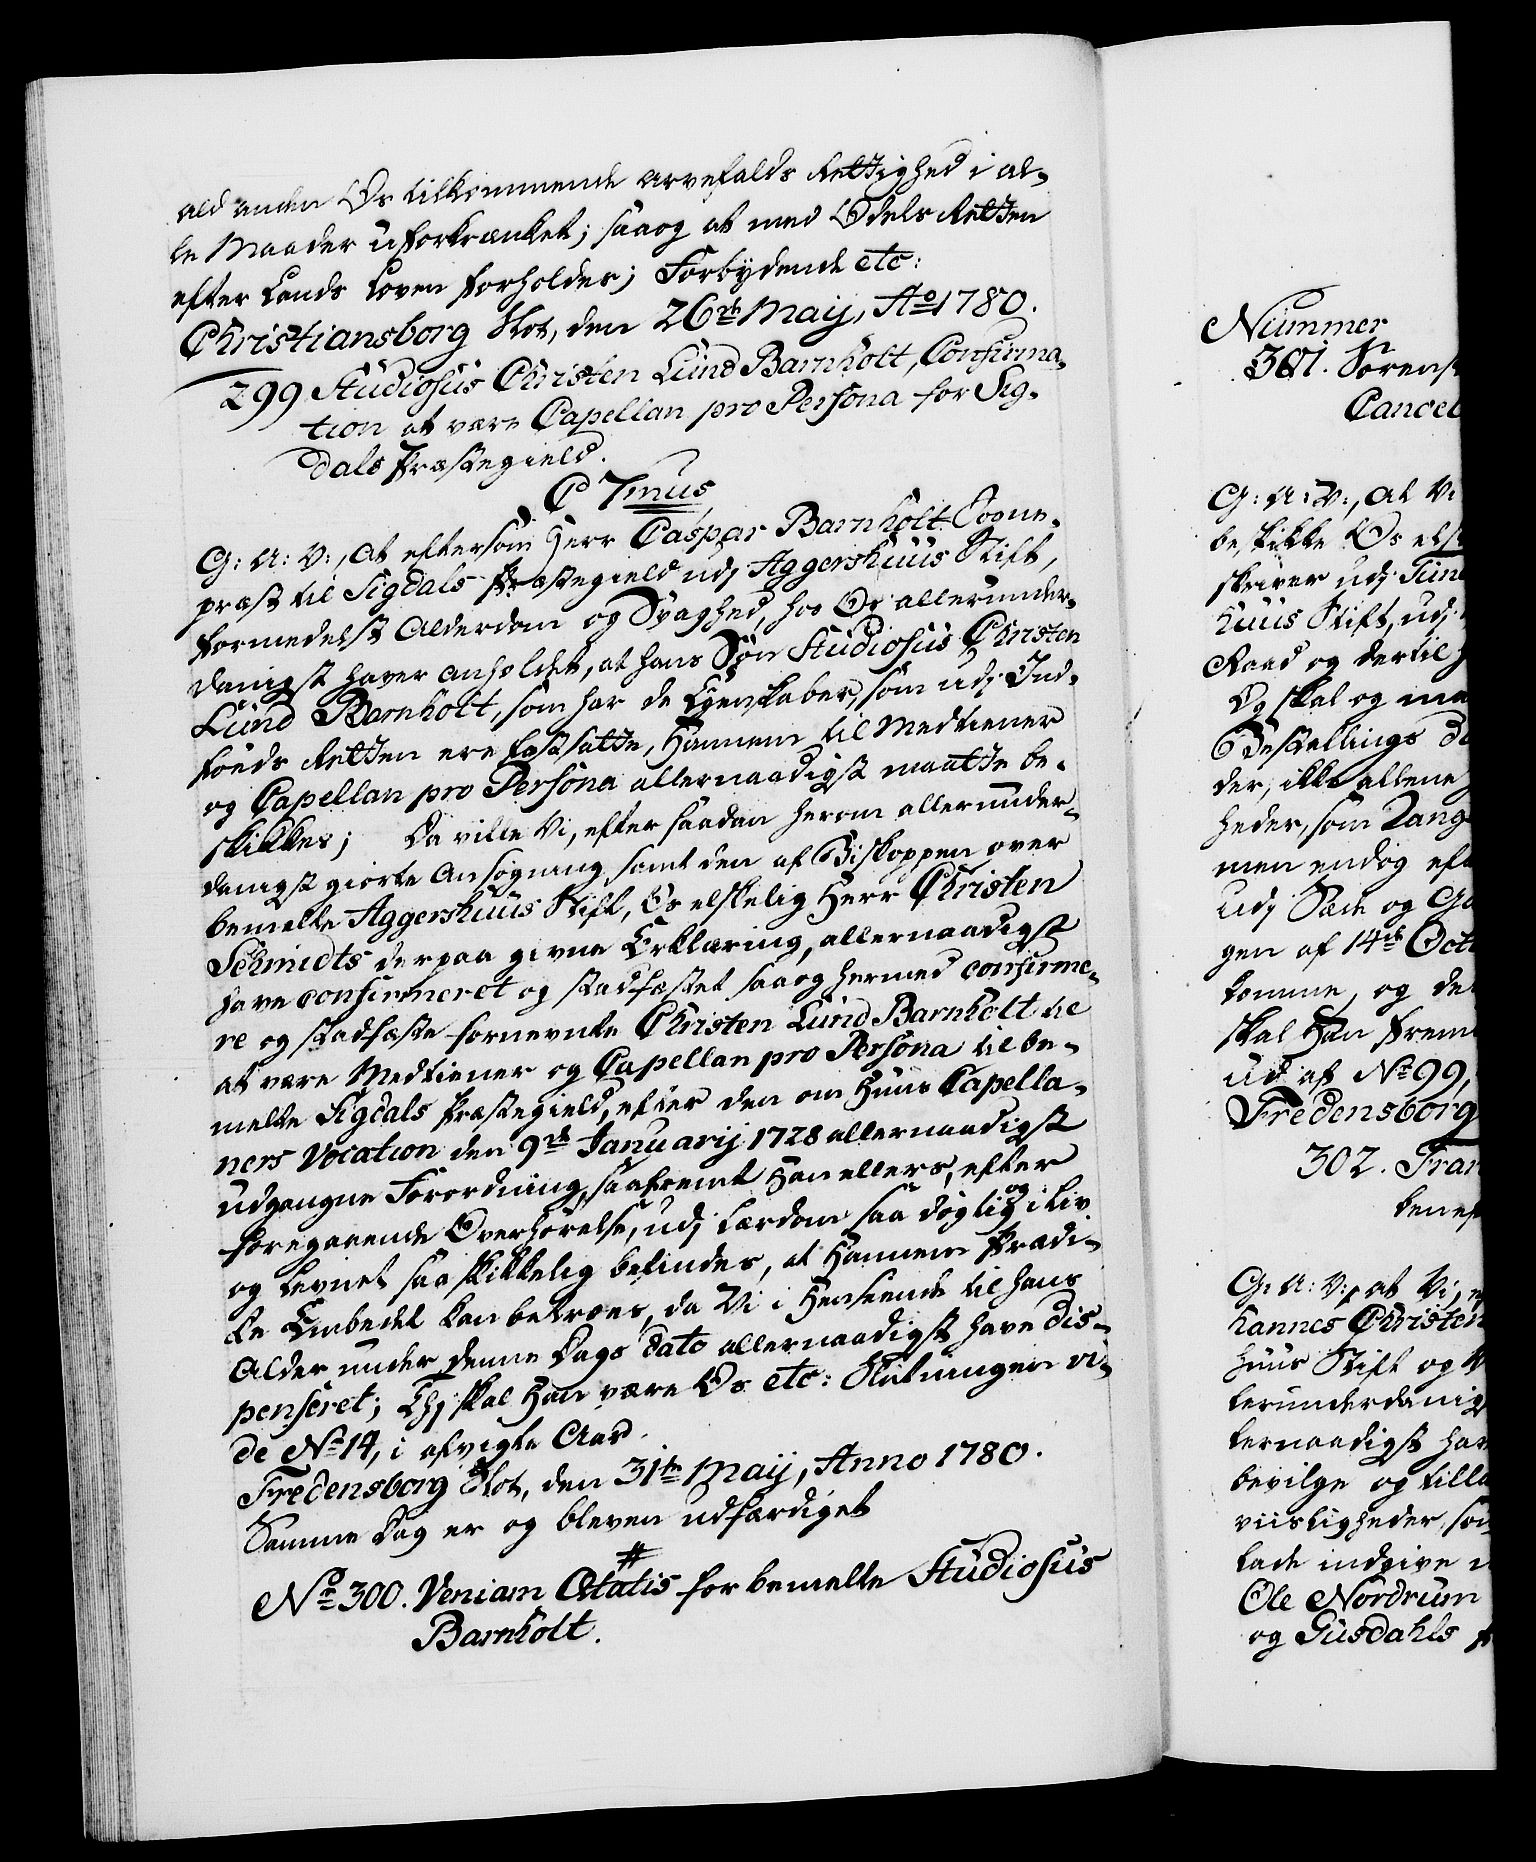 ald anden Os tilkommende Arvefalds Rettighed i al-
le Maader uforkrænket; saa og at med Odels Retten
efter Lands Loven forholdes; Forbydende etc:
Christiansborg Slot, den 26de Maij, Ao 1780.
299 Studiosus Christen Lund Barnholt, Confirma-
tion at være Capellan pro Persona for Sig-
dals Præstegield.
C 7mus
G: A: V:, At eftersom Herr Caspar Barnholt Sogne-
præst til Sigdals Præstegield udj Aggershuus Stift,
formedelst Alderdom og Svaghed, hos Os allerunder-
danigst haver anholdet, at hans Søn Studiosus Christen
Lund Barnholt, som har de Egenskaber, som udj Ind-
føds Retten ere fastsatte, Hannem til Medtiener
og Capellan pro Persona allernaadigst maatte be-
skikkes; Da ville Vi, efter saadan herom allerunder-
danigst giorte Ansøgning samt den af Biskoppen over
bemelte Aggershuus Stift, Os elskelig Herr Christen
Schmidts derpaa givne Erklæring, allernaadigst
have confirmeret og stadfæstet saa og hermed confirme-
re og stadfæste fornevnte Christen Lund Barnholt til
at være Medtiener og Capellan pro Persona til be-
melte Sigdals Præstegield, efter den om Huus Capella-
ners Vocation den 9de Januarij 1728 allernaadigst
udgangne Forordning, saafremt Han ellers, efter
foregaaende Overhørelse, udj Lærdom saa døgtig og i Liv
og Levnet saa skikkelig befindes, at Hannem Prædi-
ke Embedet kan betroes, da Vi i Henseende til hans
Alder under denne Dags Dato allernaadigst have dis-
penseret; Thj skal Han være Os etc: Slutningen vi-
de No 14, i afvigte Aar.
Fredensborg Slot, den 31te Maij, Anno 1780.
Samme Dag er og bleven udfærdiget
#
No 300. Veniam Ætatis for bemelte Studiosus
Barnholt.
Nummer
301. Sørens
Cancel
G: A: V:, At Vi
beskikke Os els
skriver udj
huus Stift, udj
Raad og dertil
Og skal og maa
Bestallings
der, ikke allene
heder, som Rang
men endog eft
udj Sæde og
gen af 14de Oct
komme, og de
skal Han frem
ud af No 99,
Fredensborg
302. Fra
G: A: V:, at Vi,
hannes Christen
huus Stift og
lerunderdanig
lernaadigst hav
bevilge og tilla
viisligheder, som
lade indgive
Ole Nordrum
og Gusdahls